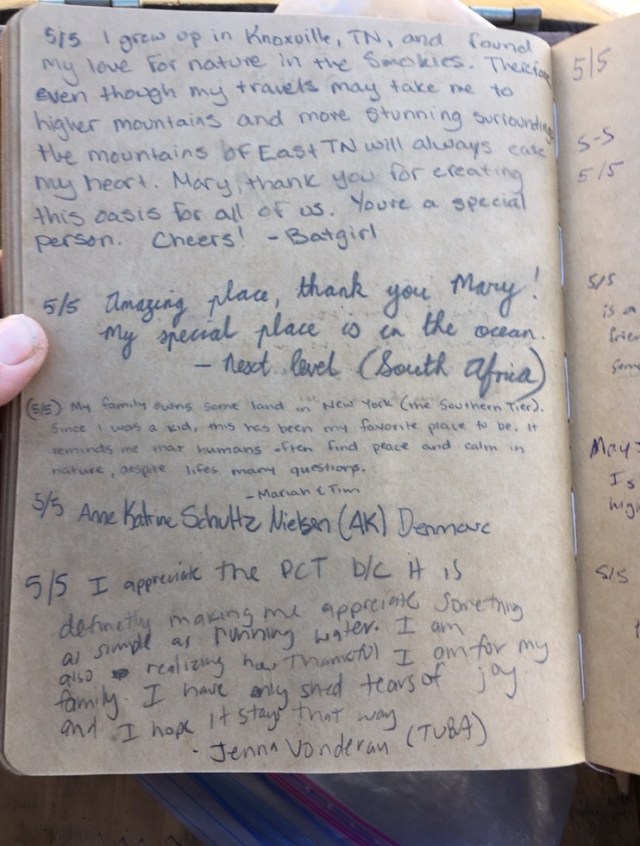 5/5 I grew up in Knoxville, TN, and found
my love for nature in the Smokies. Therefore
even though my travels may take me to
higher mountains and more stunning surroundings
the mountains of East TN will always
my heart. Mary, thank you for creating
this oasis for all of us. Youre a special
person. Cheers! - Batgirl
5/5 Amazing place, thank you Mary!
My special place is in the ocean.
- Next level (South Africa)
(5/5) My family owns some land in New York (the Southern Tier).
Since I was a kid, this has been my favorite place to be. It
reminds me that humans often find peace and calm in
nature, despite lifes many questions.
- Mariah & Tim
5/5 Anne Katrine Schultz Nielsen (AK) Denmark
5/5 I appreciate the PCT b/c it is
definetly making me appreciate something
as simple as running water. I am
also realizing how thankful I am for my
family. I have only shed tears of joy
and I hope it stays that way
- Jenna Vonderau (TUBA)
5/5
5-5
5/5
5/5
is a
frien
some
May
Is
high
5/5